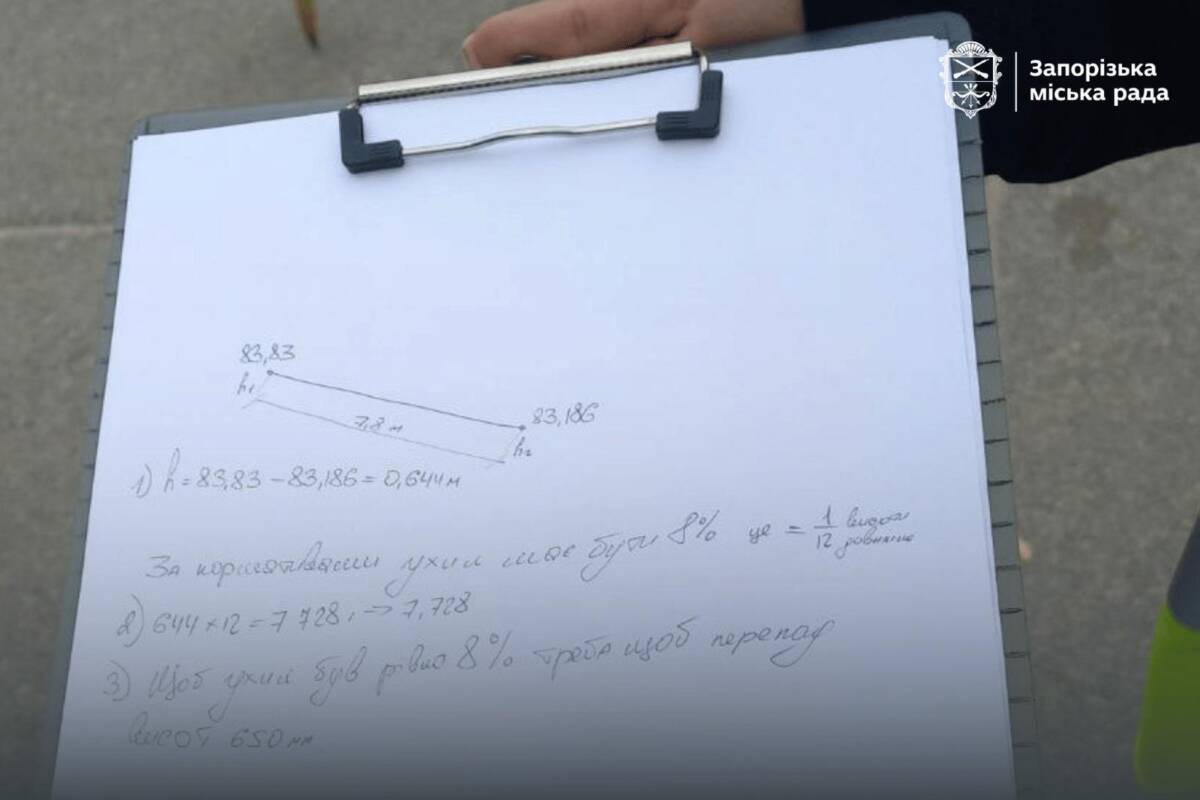 Запорізька
міська рада
83,83
h₁
7,8 м
83,186
h₂
1) h = 83,83 – 83,186 = 0,644 м
За нормативами ухил має бути 8% це = 1/12 висоти
довжини
2) 644 × 12 = 7 728, → 7,728
3) Щоб ухил був рівно 8% треба щоб перепад
висот 650 мм